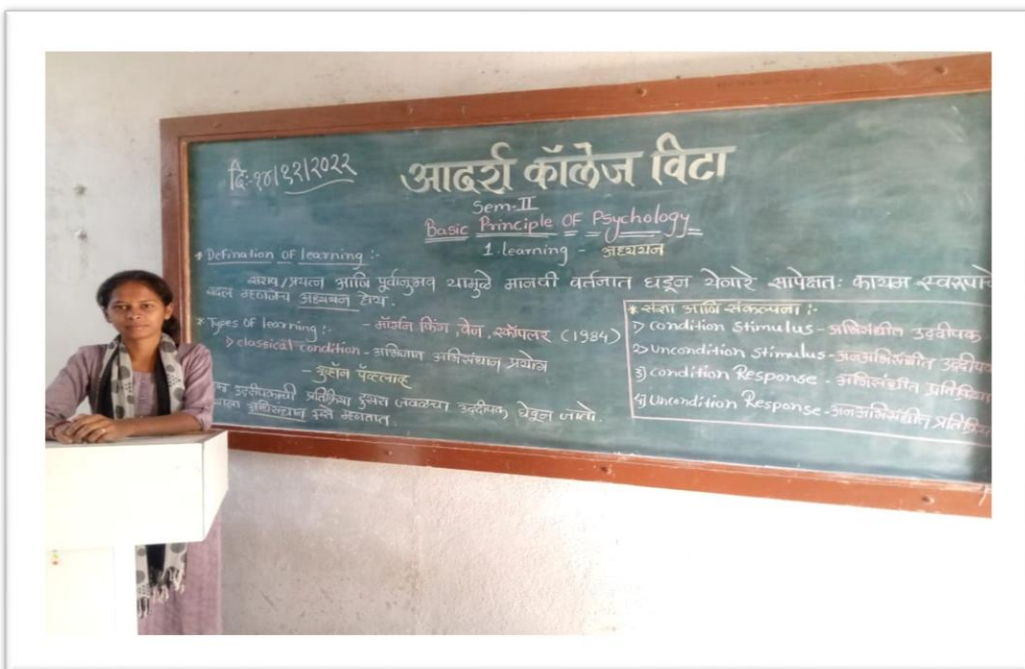 दि:-१४/१२/२०२२
आदर्श कॉलेज विटा
Sem-II
Basic Principle OF Psychology
1. learning - अध्ययन
* Defination of learning :-
सराव/प्रयत्न आणि पूर्वानुभव यामुळे मानवी वर्तनात घडून येणारे सापेक्षतः कायम स्वरूपाचे
बदल म्हणजेच अध्ययन होय.
* Types of learning :- - मॉर्गन किंग, वेन, स्कॉपलर (1984)
1) classical condition - अभिजात अभिसंधान प्रयोग
- इव्हान पॅव्हलाव्ह
उद्दीपकाची प्रतिक्रिया दुसरा जवळचा उद्दीपक घेवून जातो.
अभिसंधान असे म्हणतात.
* संज्ञा आणि संकल्पना :-
1) condition stimulus - अभिसंधीत उद्दीपक
2) Uncondition stimulus - अनअभिसंधीत उद्दीपक
3) condition Response - अभिसंधीत प्रतिक्रिया
4) Uncondition Response - अनअभिसंधीत